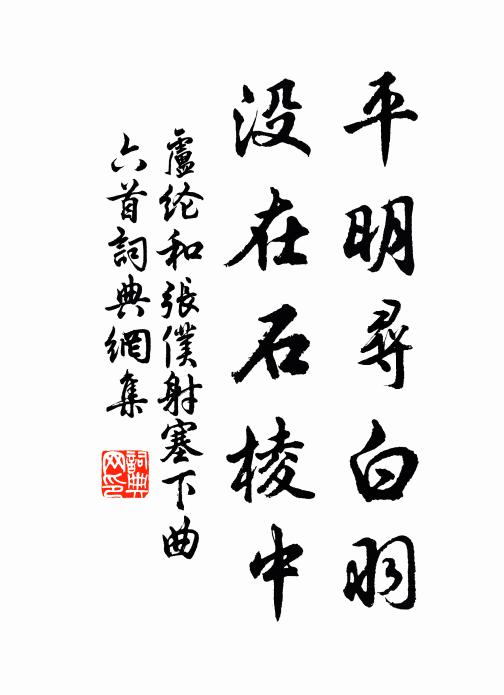 平明尋白羽
没在石棱中
盧纶和張僕射塞下曲
六首詞典網集
詞典网印